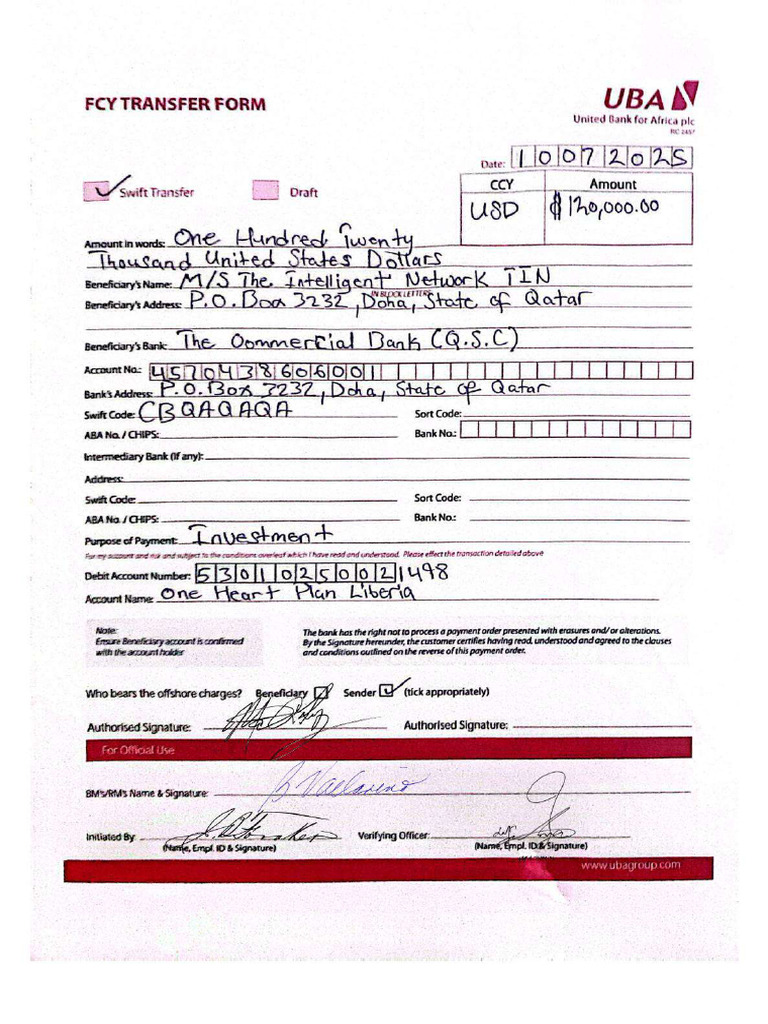 FCY TRANSFER FORM
UBA
United Bank for Africa plc
RC 2457
Date: 10072025
Swift Transfer Draft
CCY Amount
USD $120,000.00
Amount in words: One Hundred Twenty
Thousand United States Dollars
Beneficiary's Name: M/S The Intelligent Network TIN
IN BLOCK LETTERS
Beneficiary's Address: P.O. Box 3232, Doha, State of Qatar
Beneficiary's Bank: The Commercial Bank (Q.S.C)
Account No.: 4570438606001
Bank's Address: P.O. Box 3232, Doha, State of Qatar
Swift Code: CBQAQAQA Sort Code:
ABA No. / CHIPS: Bank No.:
Intermediary Bank (If any):
Address:
Swift Code: Sort Code:
ABA No. / CHIPS: Bank No.:
Purpose of Payment: Investment
For my account and risk and subject to the conditions overleaf which I have read and understood. Please effect the transaction detailed above
Debit Account Number: 53010250021498
Account Name: One Heart Plan Liberia
Note:
Ensure Beneficiary account is confirmed
with the account holder
The bank has the right not to process a payment order presented with erasures and/or alterations.
By the Signature hereunder, the customer certifies having read, understood and agreed to the clauses
and conditions outlined on the reverse of this payment order.
Who bears the offshore charges? Beneficiary Sender (tick appropriately)
Authorised Signature: Authorised Signature:
For Official Use
BM's/RM's Name & Signature:
Initiated By: Verifying Officer:
(Name, Empl. ID & Signature) (Name, Empl. ID & Signature)
www.ubagroup.com